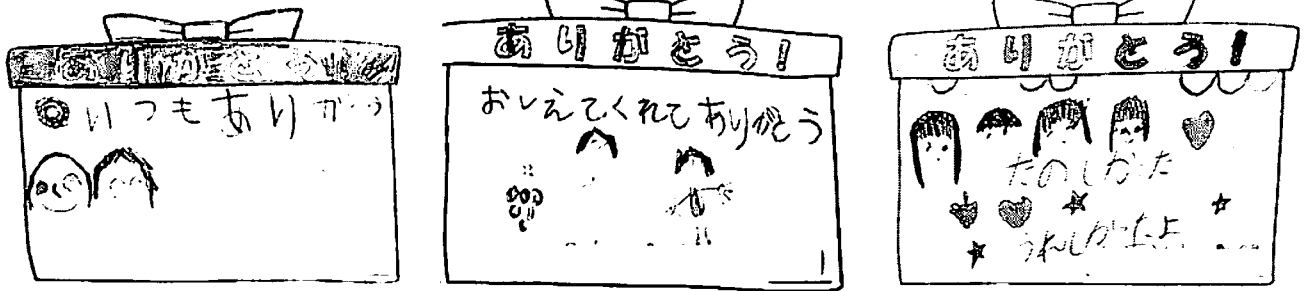 ありがとう!
いつもありがとう
ありがとう!
おしえてくれてありがとう
ありがとう!
たのしかった
うれしかったよ